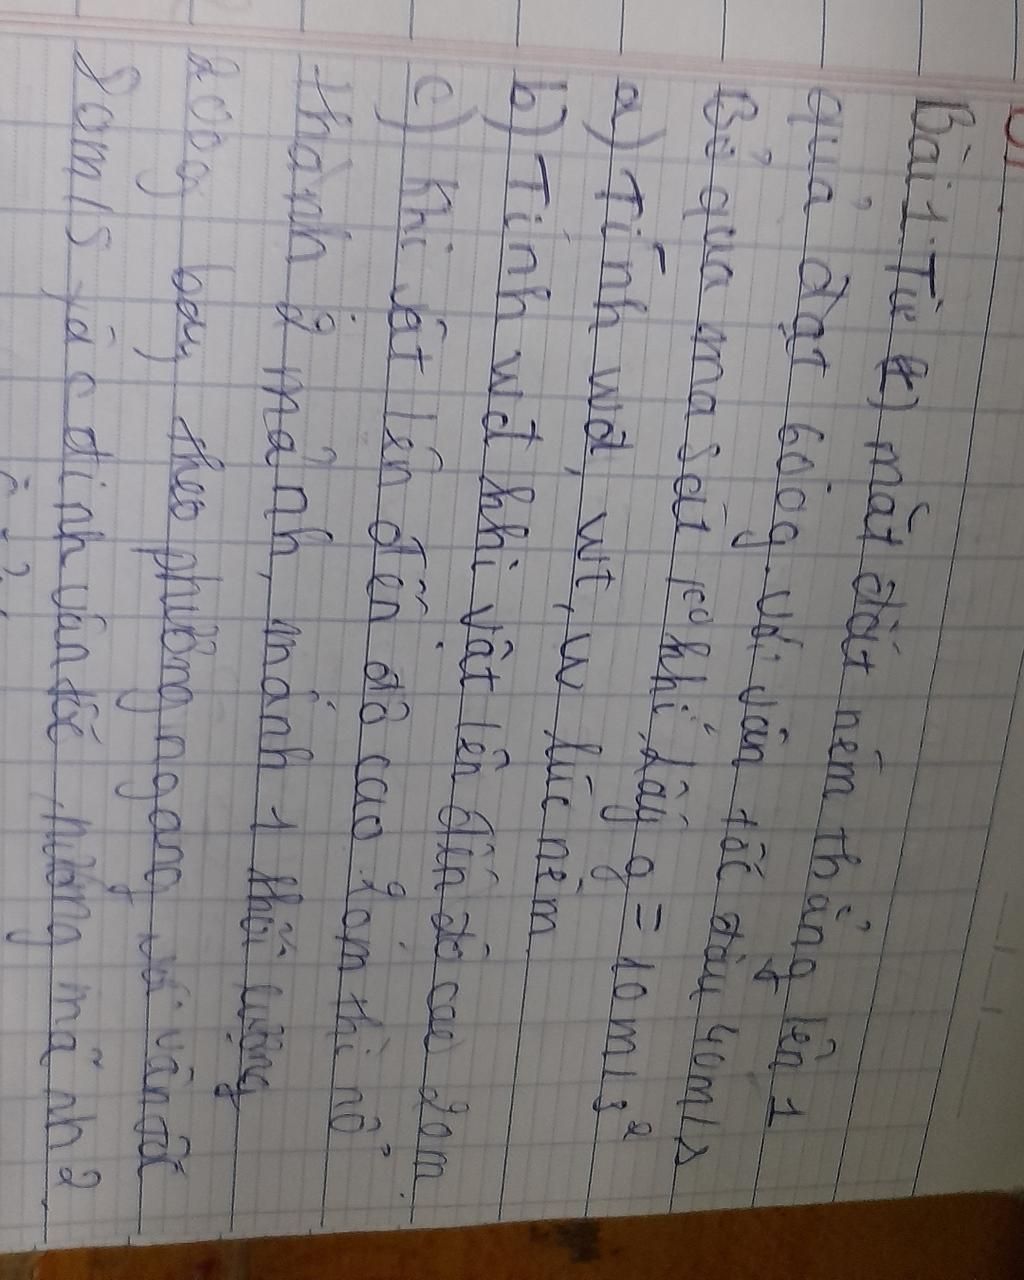 Bài 1. Từ mặt đất ném thẳng lên 1
quả đạt bóng với vận tốc đầu 40m/s
Bỏ qua ma sát khí lấy g = 10 m/s²
a) Tính wđ, wt, w lúc ném
b) Tính wđ khi vật lên đến độ cao 20m
c) Khi vật lên đến độ cao 20m thì nổ
thành 2 mảnh, mảnh 1 khối lượng
200g bay theo phương ngang với vân tốc
xác định vân tốc, hướng mảnh 2